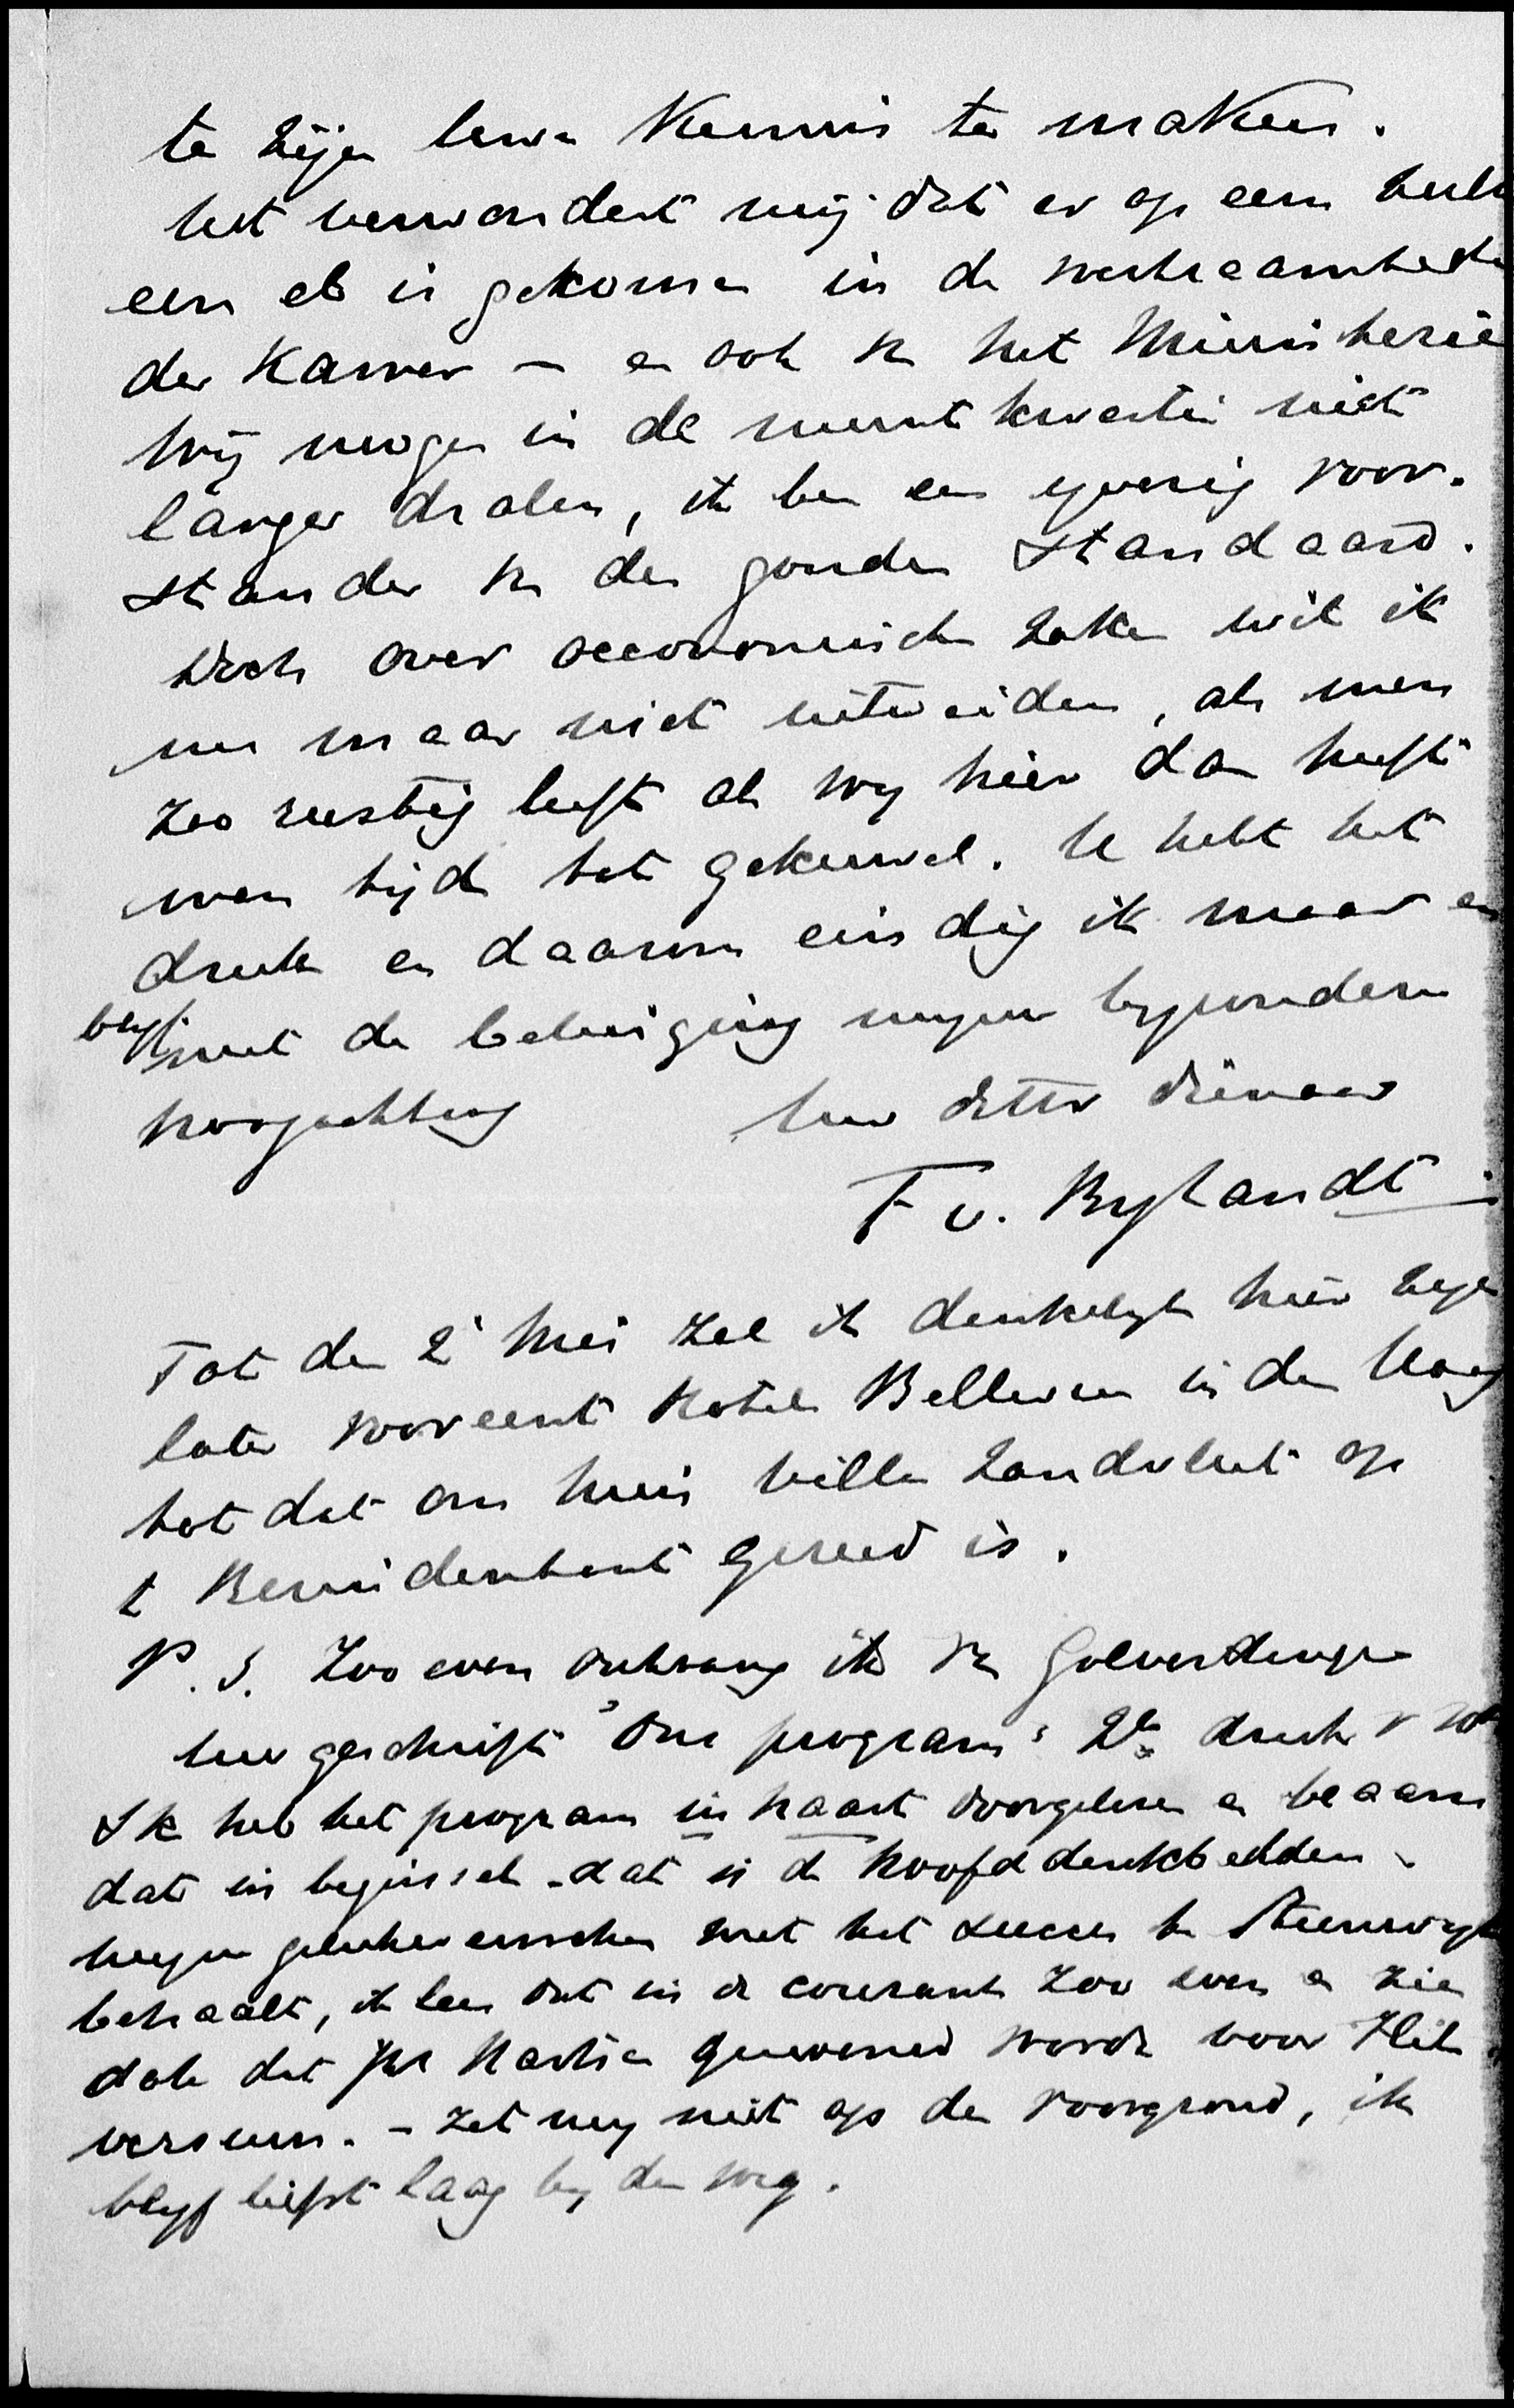 te zijn Uwe Kennis te maken.
het verwondert mij dat er op eens zulk
een eb is gekomen in de werkzaamheden
der Kamer – en ook v. het Ministerie
Wij mogen in de muntkwestie niet
langer dralen, ik ben een yverig voor-
stander v. den gouden Standaard.
Doch over oeconomische zaken wil ik
nu maar niet uitweiden, als men
zoo rustig leeft als wy hier dan heeft
men tijd tot gekeuvel. U hebt het
druk en daarom eindig ik maar en
blyf met de betuiging myner byzondere
hoogachting Uw dttr dienaar
F v. Bylandt
Tot den 2 Mei zal ik denkelyk hier zyn
later vooreerst Hotel Bellevue in den Haag
tot dat ons huis villa Zandvliet op
t Bezuidenhout gereed is.
P. S. Zoo even ontvang ik v.
Uw geschrift "Ons program" 2de druk
Ik heb het program in haast doorgelezen en beaam
dat in beginsel - dat is de hoofddenkbeelden.
myn gelukwenschen met het succes te Steenwyk
behaalt, ik lees dat in de courant zoo even en zie
ook dat Jhr gewerveld wordt voor Hil-
versum. – Zet my niet op den voorgrond, ik
blyf liefst laag by den weg.